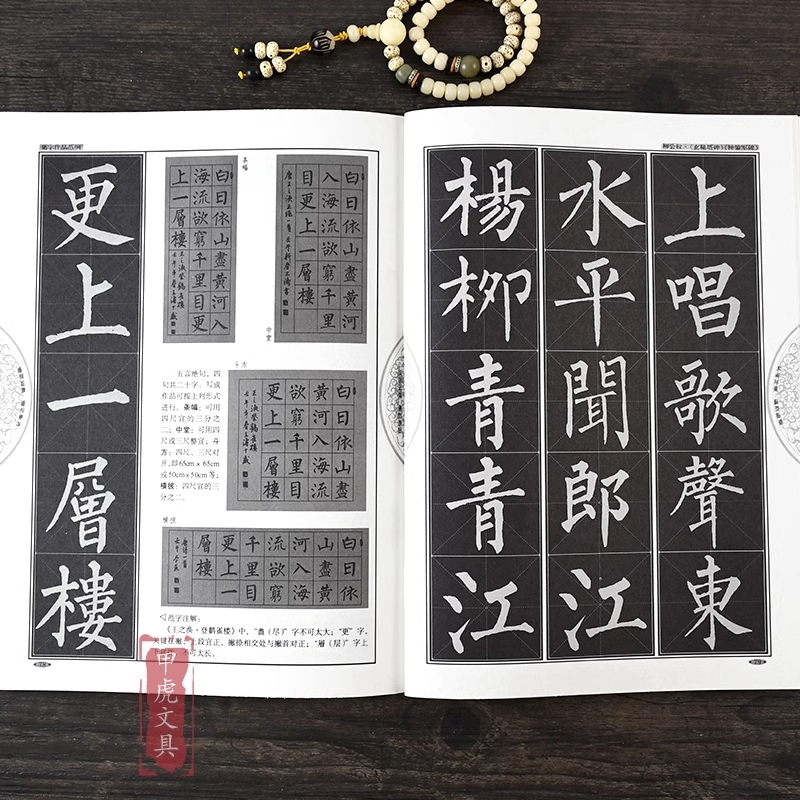 更上一層樓
条幅
白日依山盡黃河入
海流欲窮千里目更
上一層樓
中堂
白日依山盡黃河
入海流欲窮千里
目更上一層樓
五言绝句,四
句共二十字,写成
作品可按上列形式
进行。条幅:可用
四尺宣的三分之
二;中堂:可用四
尺或三尺整宣;斗
方:四尺、三尺对
开,即65cm×65cm
或50cm×50cm等;
横披:四尺宣的三
分之二。
斗方
白日依山盡
黃河入海流
欲窮千里目
更上一層樓
横披
白日依
山盡黃
河入海
流欲窮
千里目
更上一
層樓
◁范字注解:
《王之涣·登鹳雀楼》中,“盡(尽)”字不可太大;“更”字,
关键在撇,上段宜正,撇捺相交处与撇首对正;“層(层)”字上
不可太长。
上唱歌聲東
水平聞郎江
楊柳青青江
甲虎文具